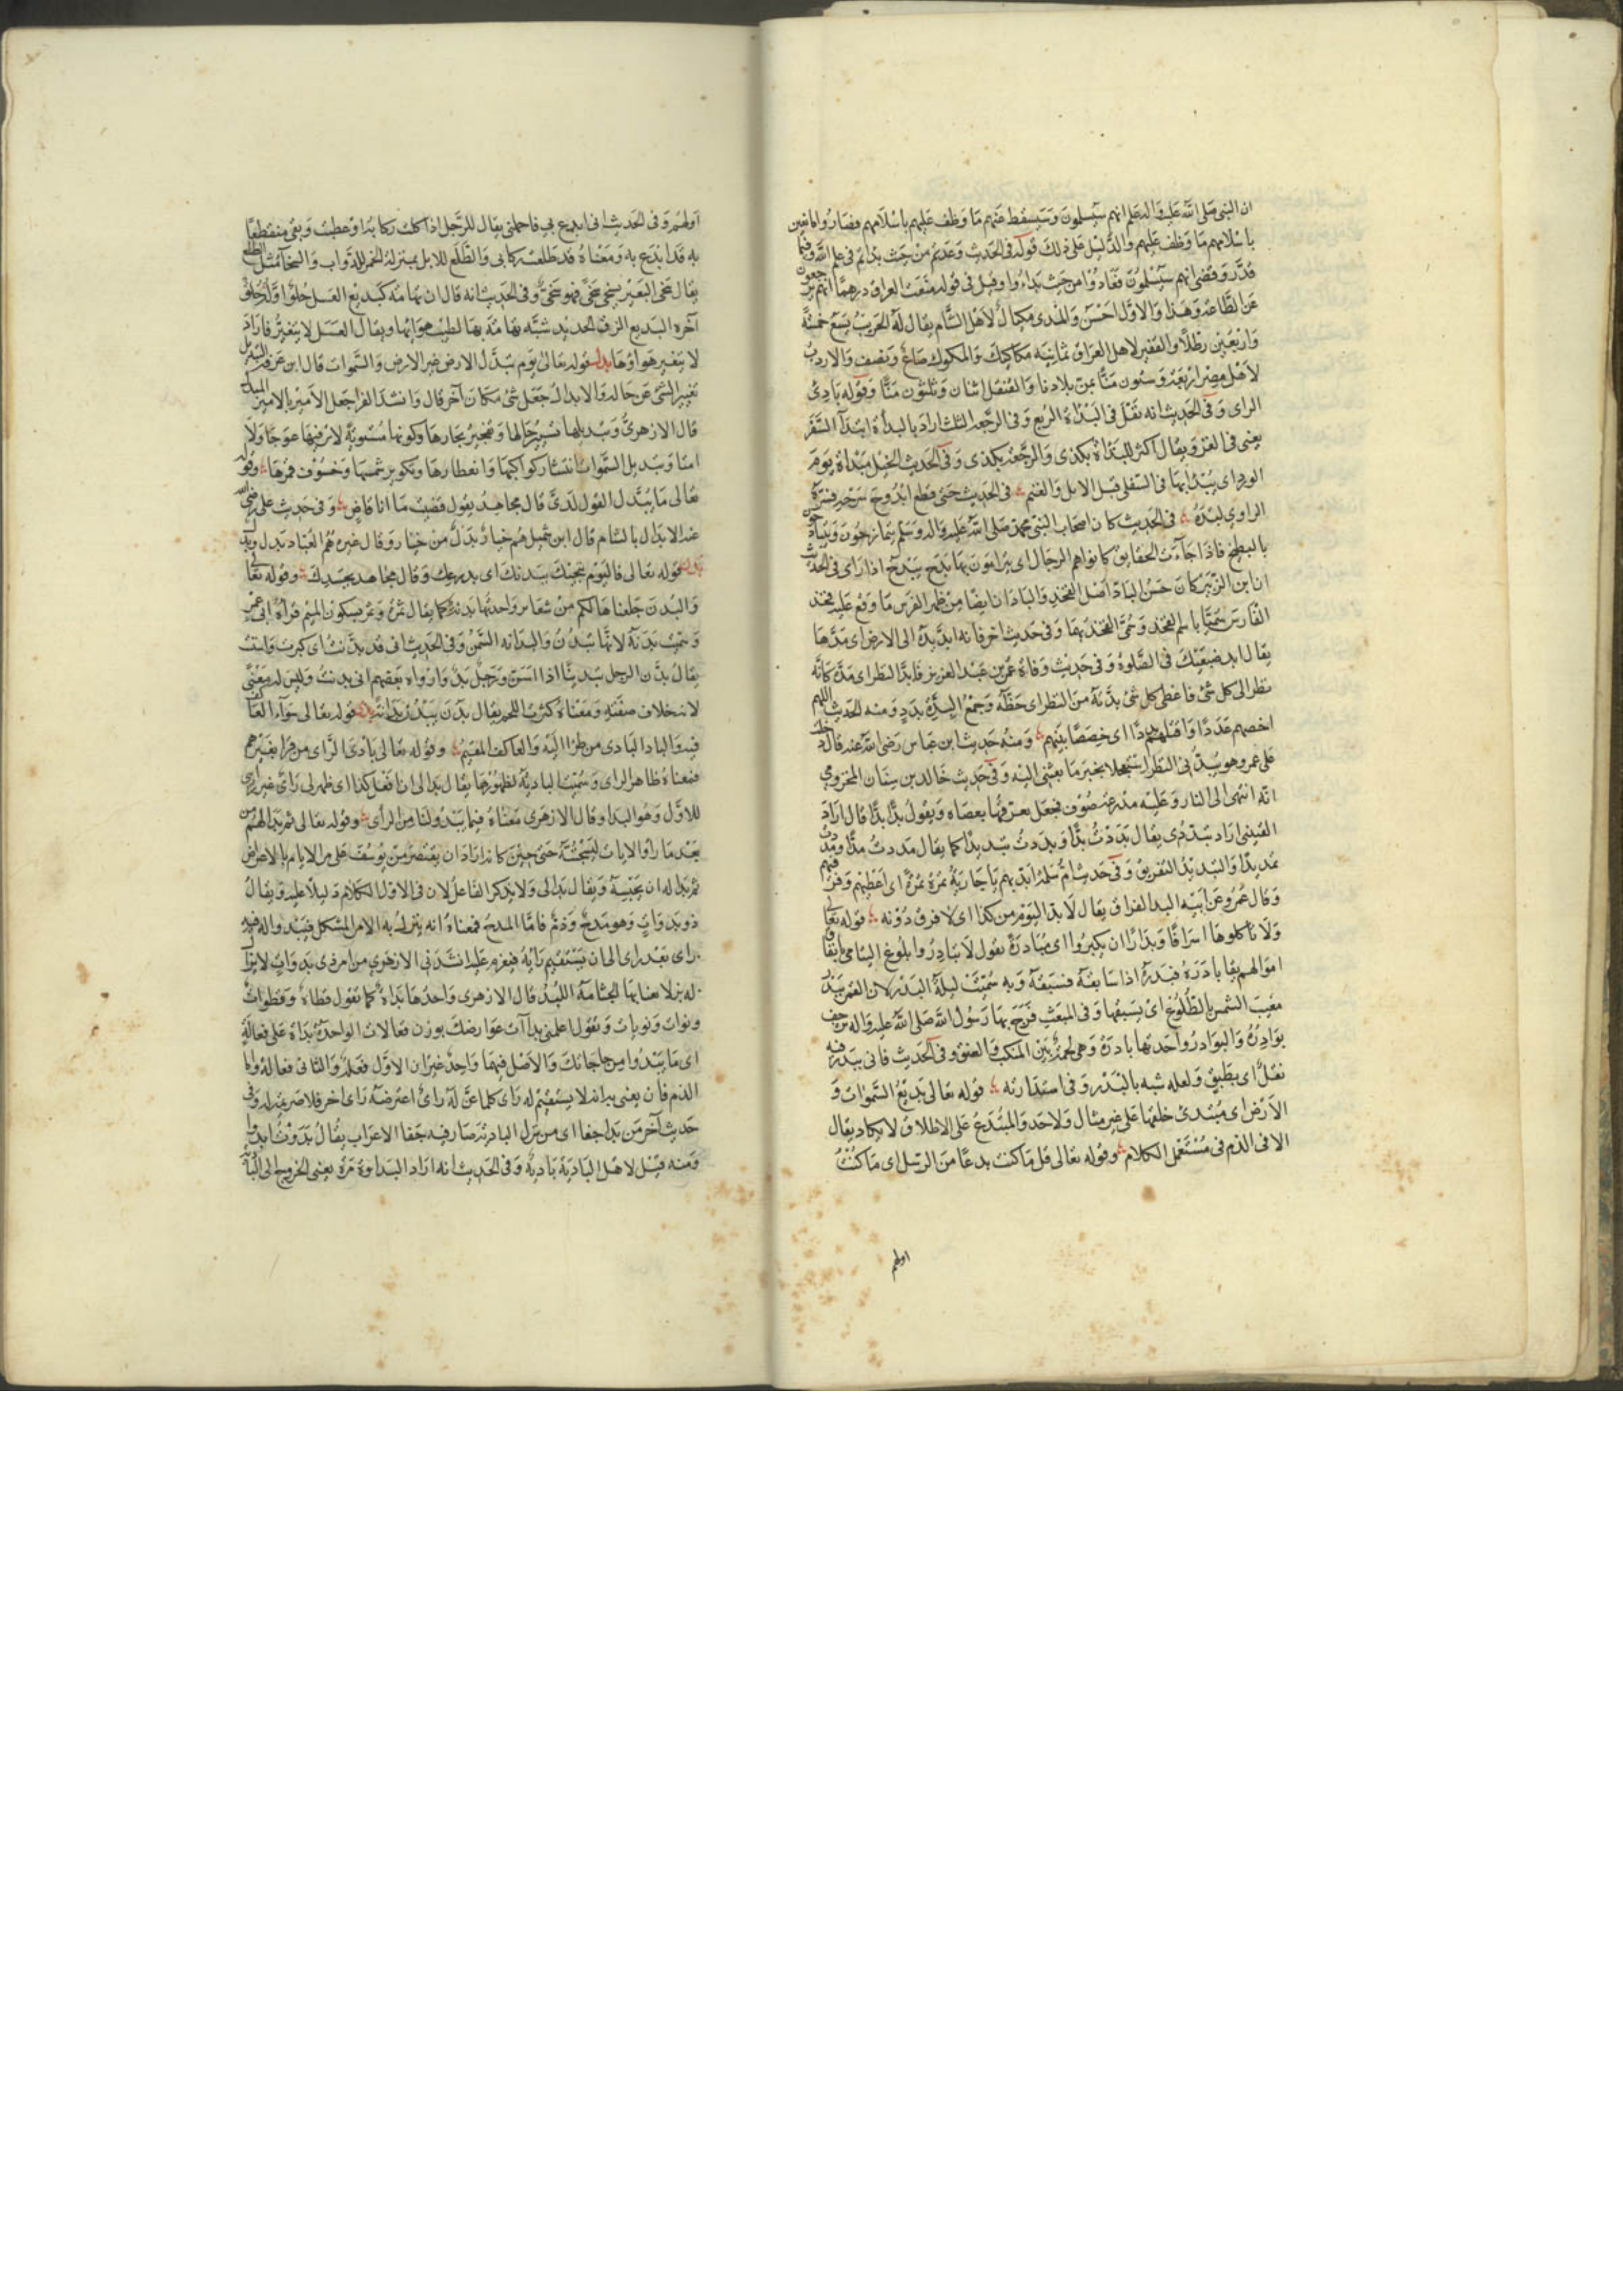 ان النبي صلى الله عليه واله علم انهم سيسلمون وسيسقط عنهم ما وظف عليهم باسلامهم فصاروا مانعين
باسلامهم ما وظف عليهم والدليل على ذلك قوله في الحديث وعدتم من حيث بداتم في علم الله وفيما
قدر وقضى انهم سيسلمون فعادوا من حيث بداءوا وقيل في قوله منعت العراق درهمها انهم يرجعون
عن الطاعة وهذا والاول احسن والمدى مكيال لاهل الشام يقال له الجريب يسع خمسة
واربعين رطلا والقفيز لاهل العراق ثمانية مكاكيك والمكوك صاع ونصف والاردب
لاهل مصر اربعة وستون منا بمن بلادنا والقنقل اثنان وثلثون منا وقوله بادئ
الراى وفي الحديث انه نفل في البداة الربع وفي الرجعة الثلث اراد بالبداة ابتدا السفر
يعني في الغزو ويقال اكثر للبداة بكذى والرجعة بكذى وفي الحديث الخيل مبداة يوم
الورد اى يبدا بها في السقى قبل الابل والغنم في الحديث حتى
الراوي لبده في الحديث كان اصحاب النبي محمد صلى الله عليه واله وسلم يتمازحون ويتبادحون
بالبطيخ فاذا جاءت الحقايق كانوا هم الرجال اى يترامون بها بدح يبدح اذا رمى في الحديث
ان ابن الزبير كان حسن الباد اصل الفخذ والبادان ايضا من ظهر الفرس ما وقع عليه فخذ
الفارس سميا باسم الفخذ وسمى الفخذ بها وفي حديث اخر فانه ابد يده الى الارض اى مدها
يقال ابد ضبعيك في الصلوة وفي حديث وفاة عمر بن عبد العزيز فابد النظر اى مده كانه
نظر الى كل شئ فاعطى كل شئ بدته من النظر اى حظه وجمع البدة بدد ومنه الحديث اللهم
احصهم عددا واقتلهم بددا اى حصصا بينهم ومنه حديث ابن عباس رضي الله عنه قال دخلت
على عمر وهو يبدني النظر استعجالا بخبر ما بعثني اليه وفي حديث خالد بن سنان المخزومي
انه انتهى الى النار وعليه مدرعة صوف فجعل يفرقها بعصاه ويقول بدا بدا قال اراد
القتيبي اراد تبددي يقال بددت بدا وبددت تبديدا كما يقال مددت مدا ومددت
تمديدا والتبديد التفريق وفي حديث ام سلمة ابديهم ياجارية تمرة تمرة اى اعطيهم وفرقي فيهم
وقال عمرو عن ابيه البد الفراق يقال لا بد اليوم من كذا اى لا فرق دونه قوله تعالى
ولا تاكلوها اسرافا وبدارا ان يكبروا اى مبادرة يقول لا تبادروا بلوغ اليتامى بانفاق
اموالهم يقال بادرة فبدره اذا سابقه فسبقه وبه سميت ليلة البدر لان القمر يبدر
مغيب الشمس بالطلوع اى يسبقها وفي المبعث فرجع بها رسول الله صلى الله عليه واله ترجف
بوادره والبوادر واحدتها بادرة وهي لحمة بين المنكب والعنق وفي الحديث فاتى ببدر فيه
بقل اى بطبق ولعله شبه بالبدر في استدارته قوله تعالى بديع السموات و
الارض اى مبتدئ خلقها على غير مثال ولاحد والمبتدع على الاطلاق لا يكاد يقال
الا في الذم في مستعمل الكلام وقوله تعالى قل ما كنت بدعا من الرسل اى ما كنت
اولهم
اولهم وفي الحديث اني ابدع بي فاحملني يقال للرجل اذا كلت ركابه او عطبت وبقى منقطعا
به قد ابدع به ومعناه قد ظلعت ركابي والظلع للابل بمنزلة الغمز للدواب
يقال وفي الحديث انه قال ان تهامة كبديع العسل حلو اوله حلو
اخره البديع الزق الجديد شبه تهامة بها لطيب هوائها ويقال العسل لا يتغير فاراد
لا يتغير هواؤها بدل قوله تعالى يوم تبدل الارض غير الارض والسموات قال ابن عرفة التبديل
تغيير الشئ عن حاله والابدال جعل شئ مكان اخر قال وانشد الفرا
قال الازهري وتبديلها تسيير جبالها وتفجير بحارها وكونها مستوية لا ترى فيها عوجا ولا
امتا وتبديل السموات انتثار كواكبها وانفطارها وتكوير شمسها وخسوف قمرها وقوله
تعالى ما يبدل القول لدي قال مجاهد يقول قضيت ما انا قاض وفي حديث على رضي الله
عنه الابدال بالشام قال ابن شميل هم خيار بدل من خيار وقال غيره هم العباد بدل وبدل
بدن قوله تعالى فاليوم ننجيك ببدنك اى بدرعك وقال مجاهد بجسدك وقوله تعالى
والبدن جعلناها لكم من شعائر واحدتها بدنة كما يقال ثمرة وثمر بسكون الميم
وسميت بدنة لانها تبدن والبدانة السمن وفي الحديث اني قد بدنت اى كبرت واسننت
يقال بدن الرجل تبدينا اذا اسن ورجل بدن ورواه بعضهم اني بدنت وليس له معنى
لانه خلاف صفته ومعناه كثرة اللحم يقال بدن يبدن بدانة بدا قوله تعالى سواء العاكف
فيه والباد البادى من طرا اليه والعاكف المقيم وقوله تعالى بادى الراى من قرا بغير همز
فمعناه ظاهر الراى وسميت البادية لظهورها يقال بدا لي ان افعل كذا اى ظهر لي راى غير رأى
للاول وهو البدا وقال الازهري معناه فيما يبدو لنا من الرأى وقوله تعالى ثم بدا لهم من
بعد ما راوا الايات ليسجننه حتى حين
ثم بدا له ان يحبسه ويقال بدا لي ولا يذكر الفاعل لان في الاول الكلام دليلا عليه ويقال
ذو بدوات وهو مدح وذم فاما المدح فمعناه انه ينزل به الامر المشكل فيبدو له فيه
راى بعد راى الى ان يستقيم رايه فيعزم عليه انشدني الازهري من امر ذى بدوات لا يزال
له بزلا يعيا بها الجثامة اللبد قال الازهري واحدها بداة كما تقول قطاة وقطوات
ونواة ونويات ويقول اعلمني بداآت عوارضك بوزن فعالات الواحدة بداة على فعالة
اى ما يبدو من حاجاتك والاصل فيهما واحد غير ان الاول فعلة والثاني فعالة واما
الذم فان يعنى به انه لا يستقيم له راى كلما عن له راى اعترضه راى اخر فلا صريمة له وفي
حديث اخر من بدا جفا اى من نزل البادية صار فيه جفا الاعراب يقال بدوت ابدو
ومنه قيل لاهل البادية بادية وفي الحديث انه اراد البداوة مرة يعني الخروج الى البادية